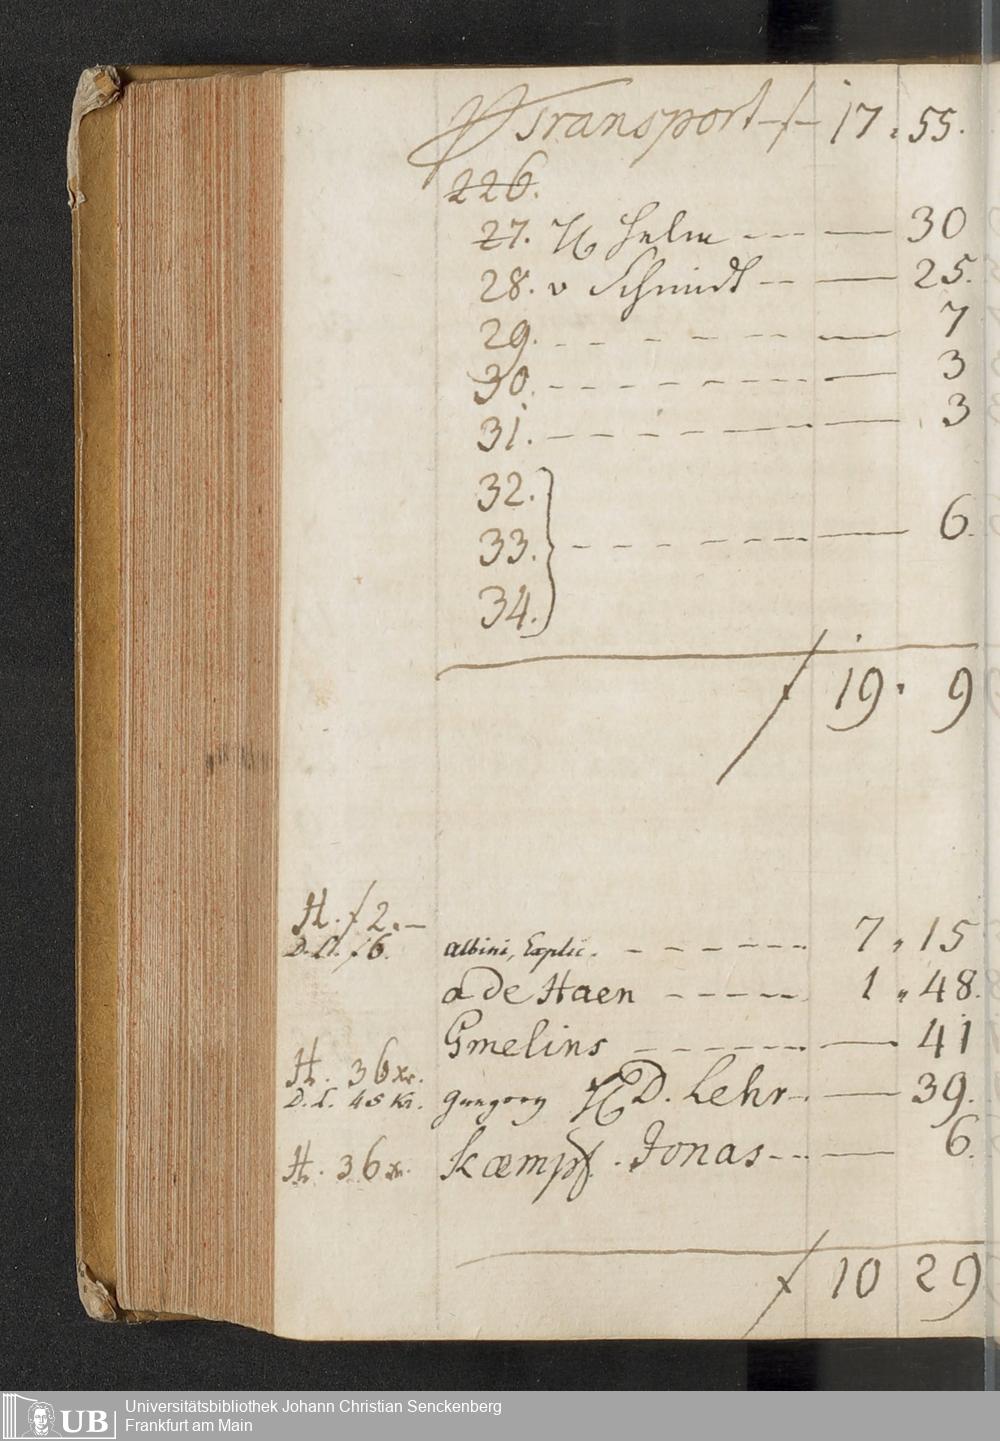 Transport f 17 . 55.
226.
27. H Helm - - - — 30
28. v Schmidt - - — 25.
29. - - - - - - — 7
30. - - - - - - — 3
31. - - - - - - — 3
32.
33. - - - - - — 6.
34.
f 19 . 9
H. f 2. —
D. L. f 6. Albini, Explic. - - - - - 7 " 15
a De Haen - - - - 1 " 48.
Gmelins - - - - - — 41
H. 36 xr.
D. L. 45 Kr. H D. Lehr - — 39.
H. 36 xr. Kaempf. Jonas - - - — 6.
f 10 29
UB Universitätsbibliothek Johann Christian Senckenberg
Frankfurt am Main